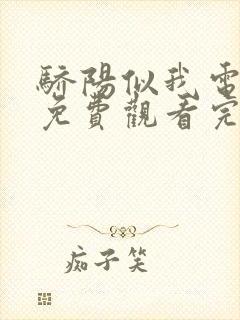 驕陽似我電
免費觀看完
痴子笑